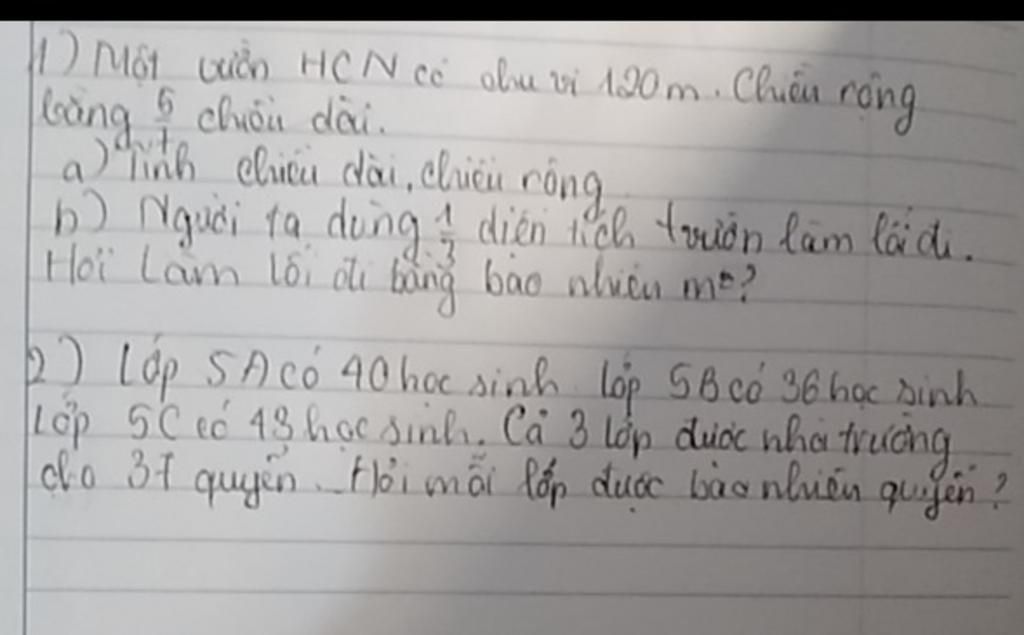 1) Một vườn HCN có chu vi 120m. Chiều rộng
bằng 5/7 chiều dài.
a) Tính chiều dài, chiều rộng
b) Người ta dùng 1/3 diện tích vườn làm lối đi.
Hỏi Làm lối đi bằng bao nhiêu m²?
2) Lớp 5A có 40 học sinh lớp 5B có 36 học sinh
Lớp 5C có 43 học sinh. Cả 3 lớp được nhà trường
cho 37 quyển. Hỏi mỗi lớp được bao nhiêu quyển?